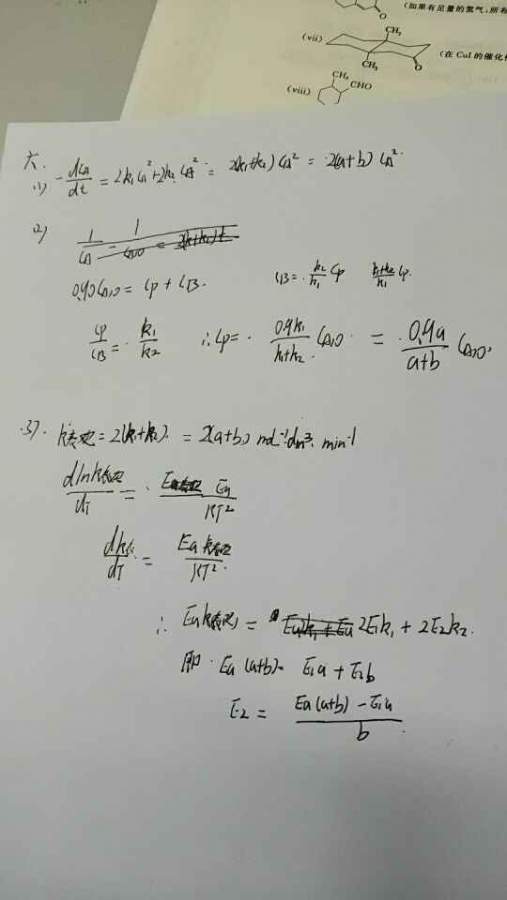 (如果有足量的氢气,所有
(vii)
CH₃
CH₃
O
(在 CuI 的催化作
(viii)
CH₃
CHO
六.
(1) -dC_A/dt = 2k₁C_A²+2k₂C_A² = 2(k₁+k₂)C_A² = 2(a+b)C_A²
2)
0.90C_A,0 = C_P + C_B.
C_B = k₂/k₁ C_P
C_P/C_B = k₁/k₂ ∴ C_P = 0.9k₁/k₁+k₂ C_A,0 = 0.9a/a+b C_A,0
3). k表观 = 2(k₁+k₂). = 2(a+b) mol⁻¹·dm³·min⁻¹
dlnk表观/dT = Ea/RT²
dk表/dT = Ea k表观/RT²
∴ Ea k表观 = 2E₁k₁ + 2E₂k₂.
即 Ea (a+b) = E₁a + E₂b
E₂ = Ea(a+b) - E₁a/b